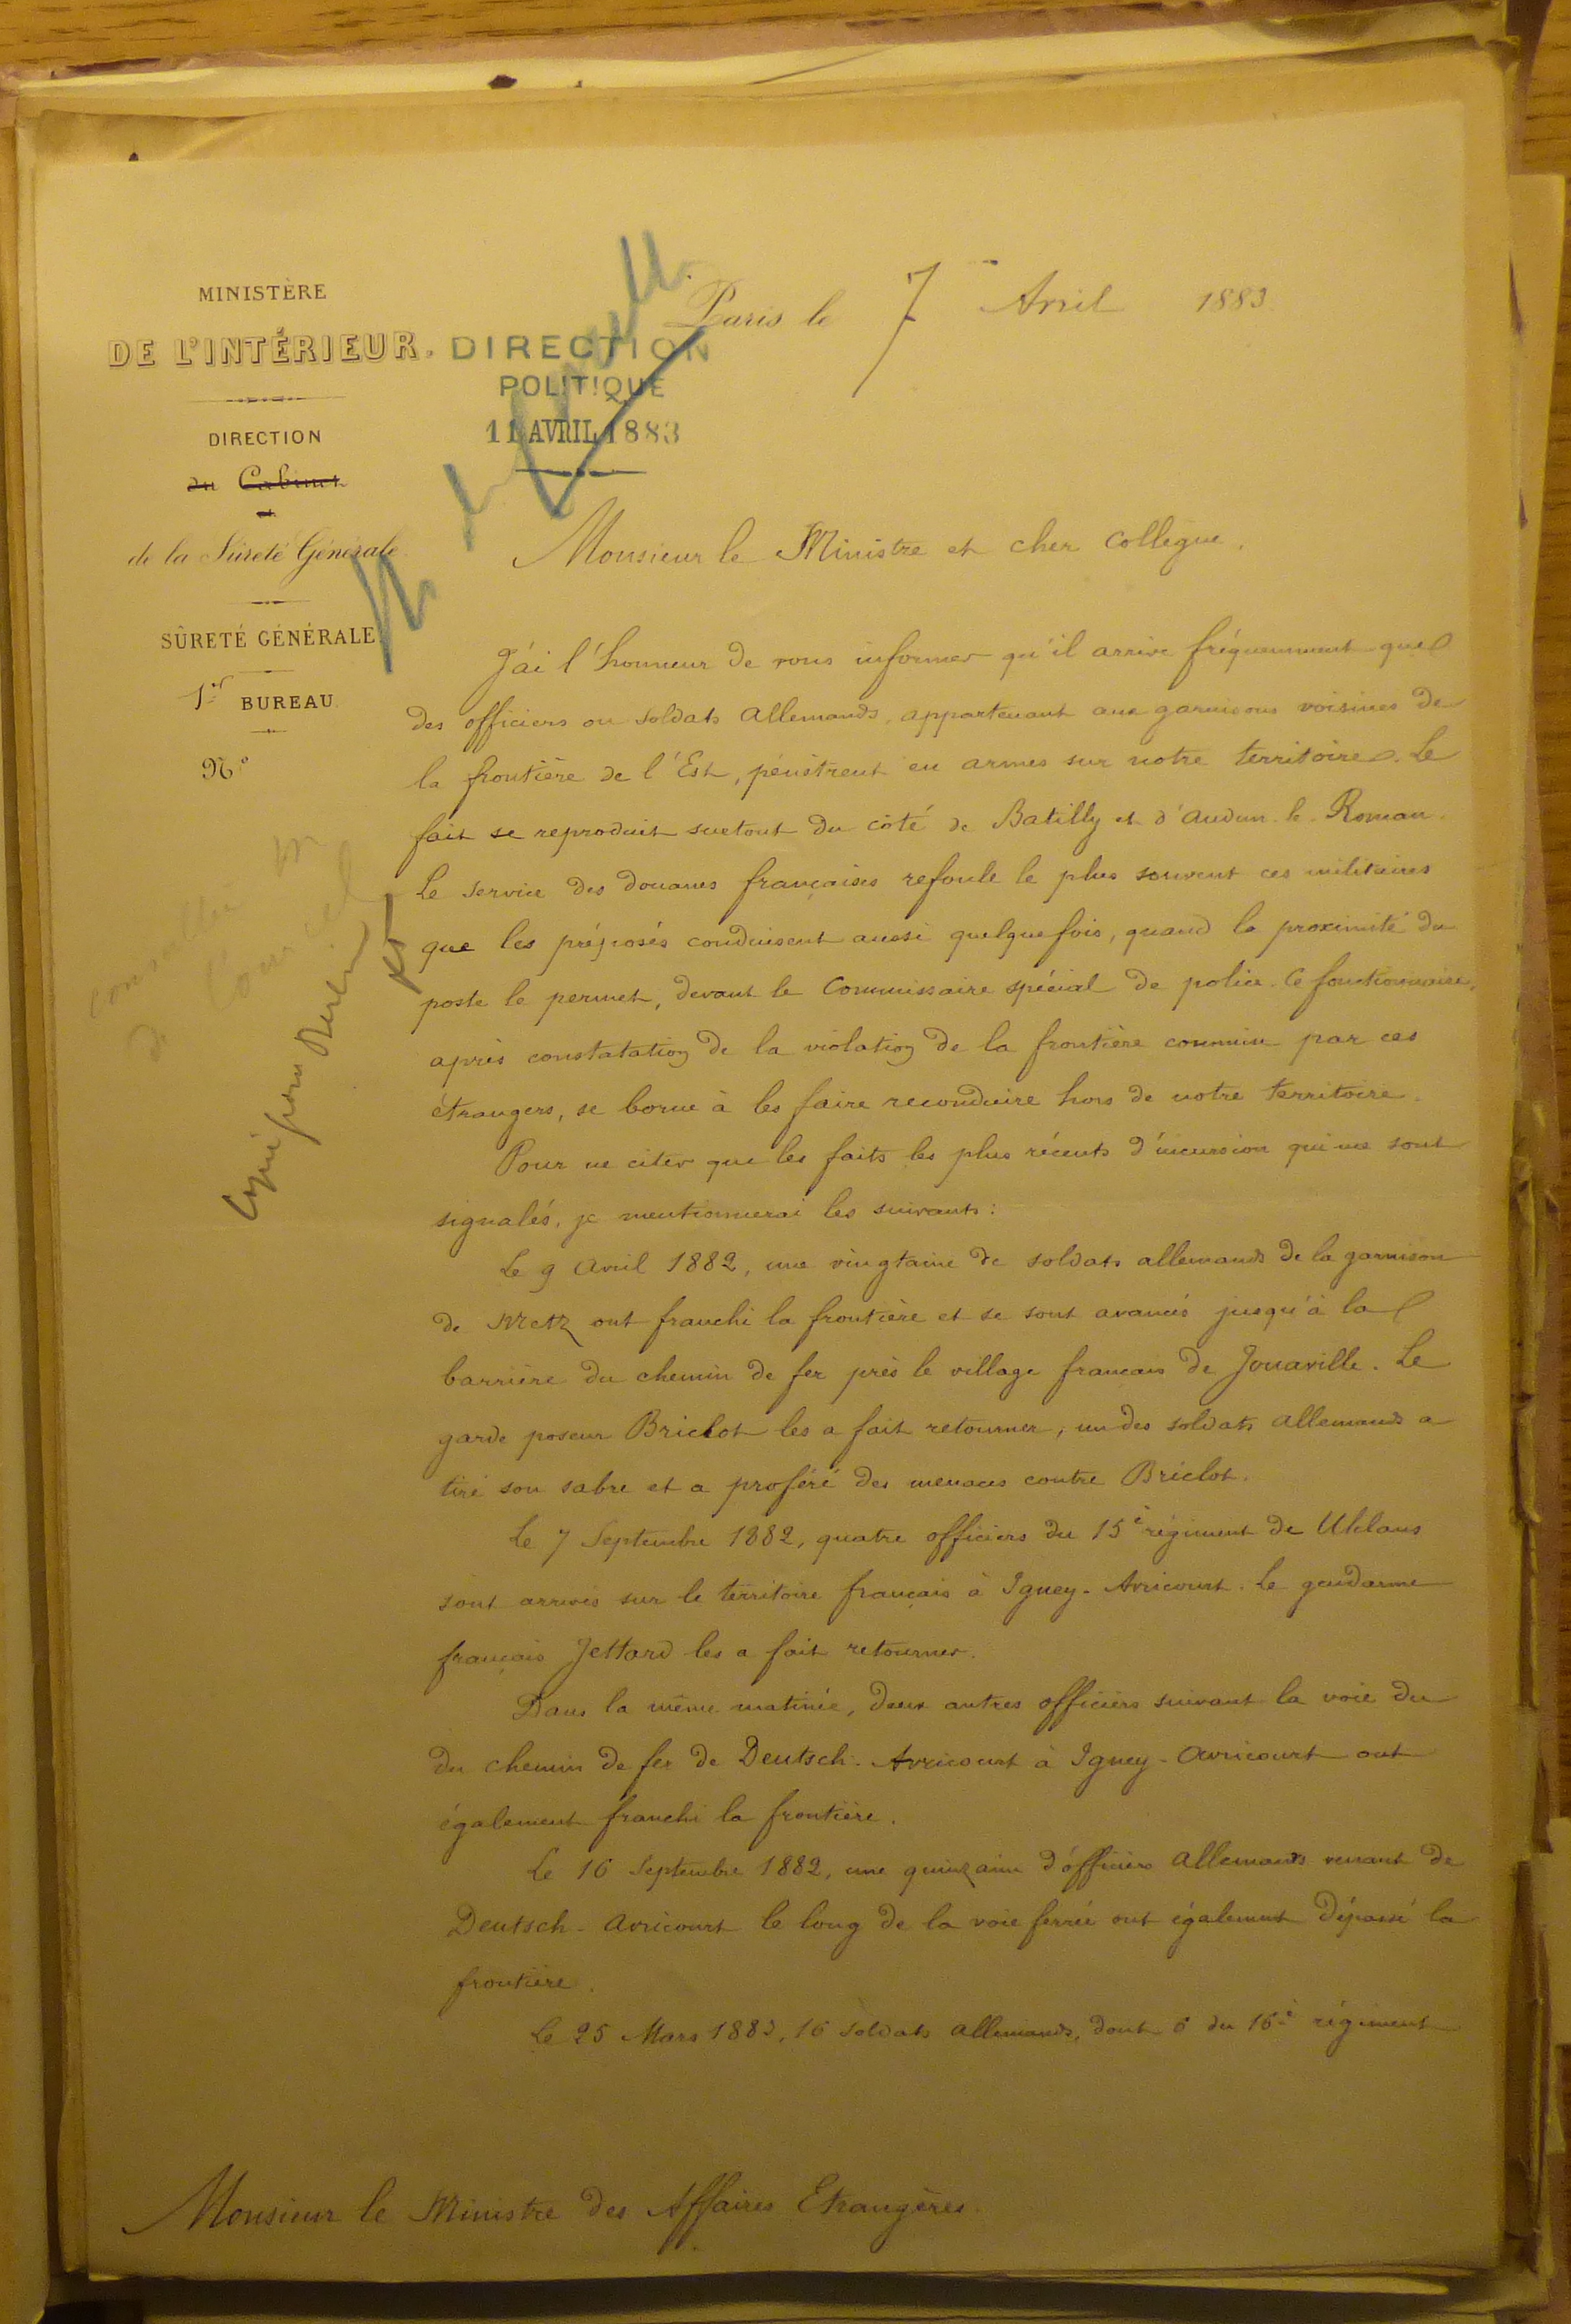 MINISTÈRE
DE L'INTÉRIEUR.
DIRECTION
du Cabinet
et
de la Sûreté Générale
SÛRETÉ GÉNÉRALE
1er BUREAU.
No
DIRECTION
POLITIQUE
11 AVRIL 1883
Paris le 7 Avril 1883
Monsieur le Ministre et cher Collègue,
J'ai l'honneur de vous informer qu'il arrive fréquemment que
des officiers ou soldats allemands, appartenant aux garnisons voisines de
la frontière de l'Est, pénètrent en armes sur notre territoire. Le
fait se reproduit surtout du côté de Batilly et d'Audun-le-Roman.
Le service des douanes françaises refoule le plus souvent ces militaires
que les préposés conduisent aussi quelquefois, quand la proximité du
poste le permet, devant le Commissaire spécial de police. Ce fonctionnaire,
après constatation de la violation de la frontière commise par ces
étrangers, se borne à les faire reconduire hors de notre territoire.
Pour ne citer que les faits les plus récents d'incursion qui me sont
signalés, je mentionnerai les suivants:
Le 9 Avril 1882, une vingtaine de soldats allemands de la garnison
de Metz ont franchi la frontière et se sont avancés jusqu'à la
barrière du chemin de fer près le village français de Jouaville. Le
garde poseur Briclot les a fait retourner; un des soldats allemands a
tiré son sabre et a proféré des menaces contre Briclot.
Le 7 Septembre 1882, quatre officiers du 15e régiment de Uhlans
sont arrivés sur le territoire français à Igney-Avricourt. Le gendarme
français Jettard les a fait retourner.
Dans la même matinée, deux autres officiers suivant la voie du
du chemin de fer de Deutsch-Avricourt à Igney-Avricourt ont
également franchi la frontière.
Le 16 Septembre 1882, une quinzaine d'officiers allemands venant de
Deutsch-Avricourt le long de la voie ferrée ont également dépassé la
frontière.
Le 25 Mars 1883, 16 soldats allemands, dont 6 du 16e régiment
Monsieur le Ministre des Affaires Etrangères.